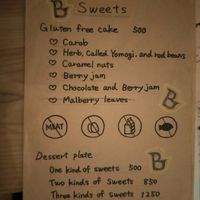 Sweets
Gluten free cake 500
♡ Carob
♡ Herb, Called Yomogi, and red beans
♡ Caramel nuts
♡ Berry jam
♡ Chocolate and Berry jam
♡ Malberry leaves
MEAT
Dessert plate
One kind of sweets 500
Two kinds of sweets 850
Three kinds of sweets 1250